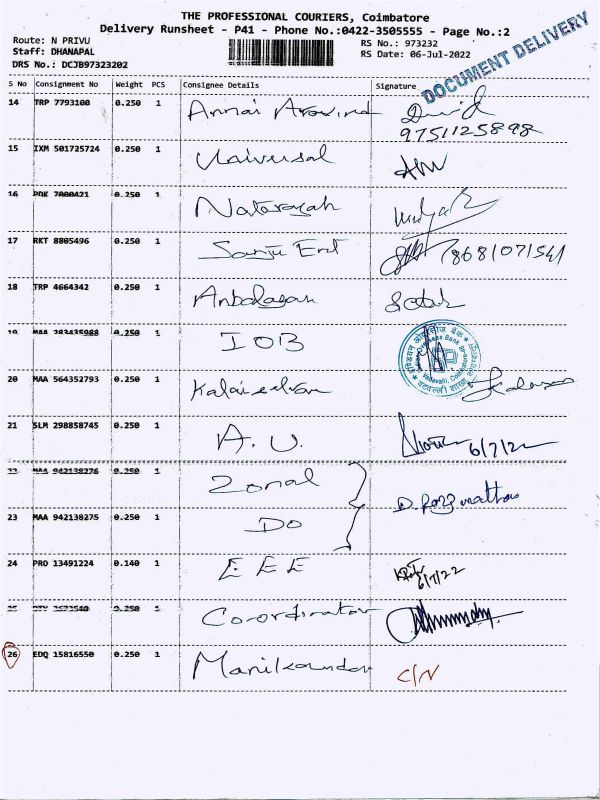 THE PROFESSIONAL COURIERS, Coimbatore
Delivery Runsheet - P41 - Phone No.:0422-3505555 - Page No.:2
Route: N PRIVU
RS No.: 973232
Staff: DHANAPAL
RS Date: 06-Jul-2022
DRS No.: DCJB97323202
DOCUMENT DELIVERY
S No Consignment No Weight PCS Consignee Details Signature
14 TRP 7793100 0.250 1 Annai Aravind David
9751125898
15 IXM 501725724 0.250 1 Universal
16 PDK 7000421 0.250 1 Natarajah
17 RKT 8805496 0.250 1 Sanju Ent 8681071541
18 TRP 4664342 0.250 1 Anbalagan
19 MAA 283435988 0.250 1 IOB
20 MAA 564352793 0.250 1 Kalaiselvan
21 SLM 298858745 0.250 1 A.U. 6/7/22
22 MAA 942138276 0.250 1 Zonal
23 MAA 942138275 0.250 1 DO
24 PRO 13491224 0.140 1 EEE 6/7/22
25 3573540 0.250 1 Co-ordinator
26 EDQ 15816550 0.250 1 Manikandan C/N